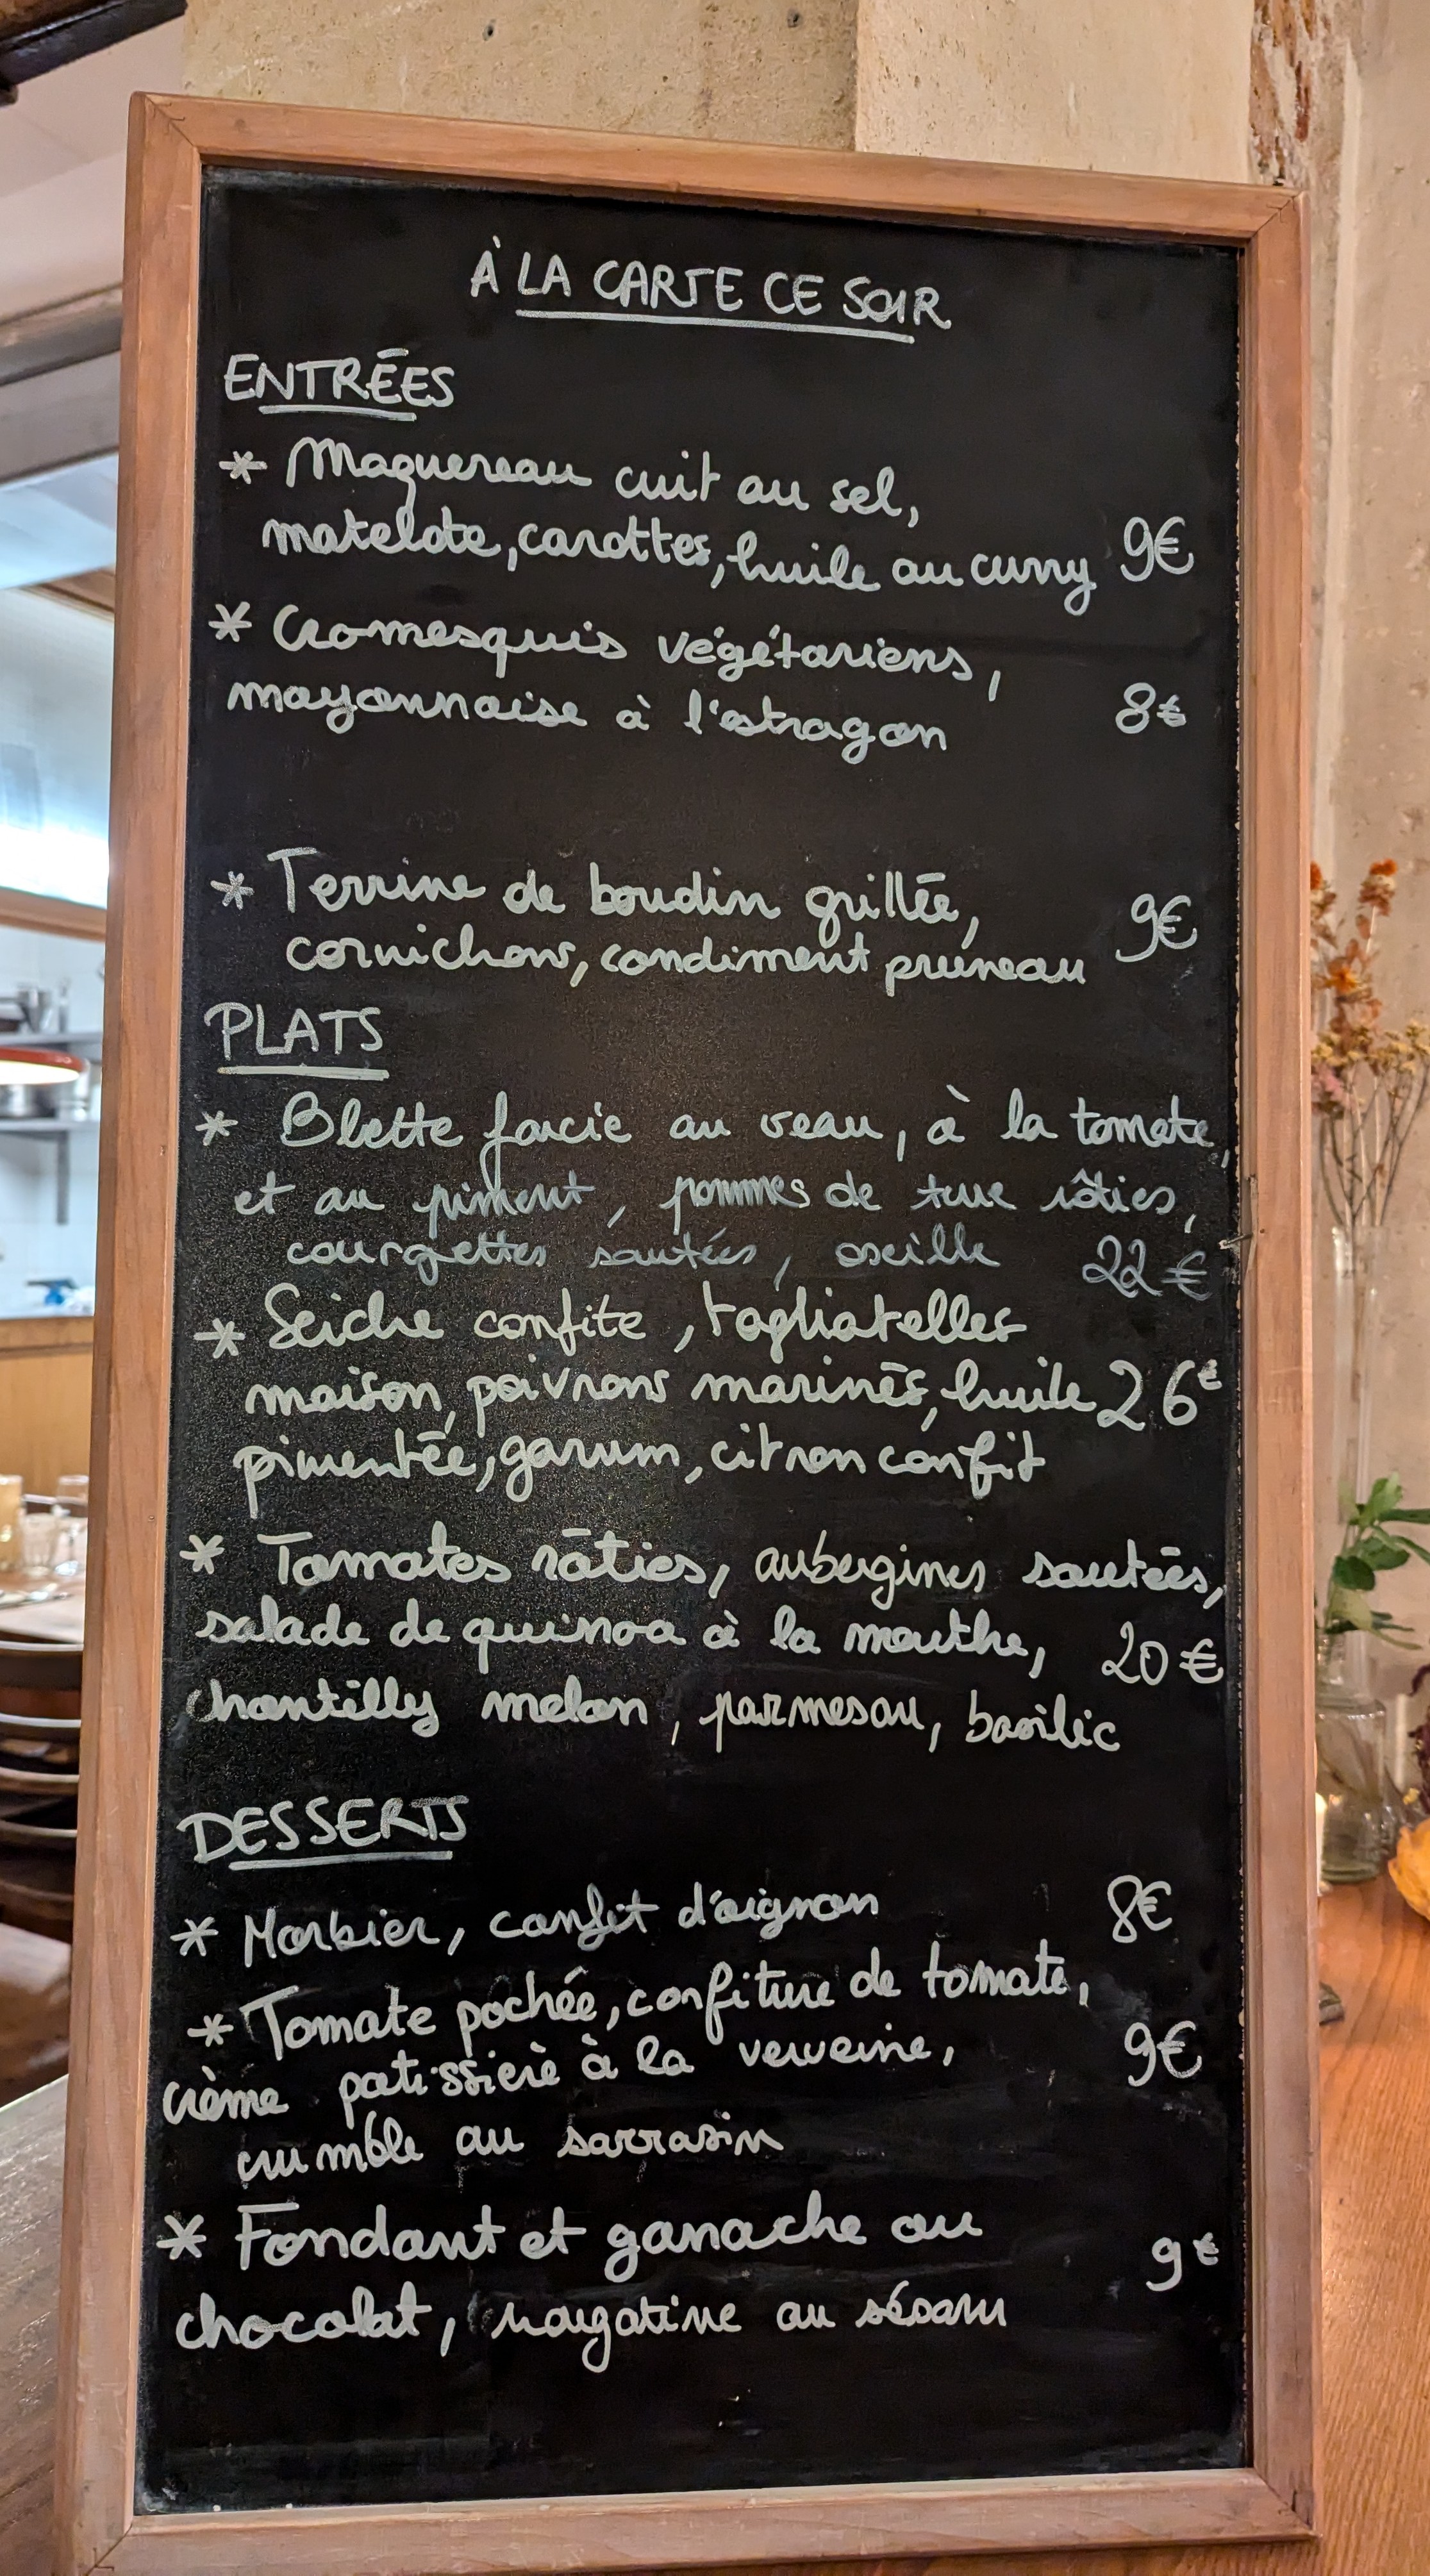 À LA CARTE CE SOIR
ENTRÉES
* Maquereau cuit au sel,
matelote, carottes, huile au curry 9€
* Cromesquis végétariens,
mayonnaise à l'estragon 8€
* Terrine de boudin grillée,
cornichons, condiment pruneau 9€
PLATS
* Blette farcie au veau, à la tomate,
et au piment, pommes de terre rôties,
courgettes sautées, oseille 22€
* Seiche confite, tagliatelles
maison, poivrons marinés, huile 26€
pimentée, garum, citron confit
* Tomates rôties, aubergines sautées,
salade de quinoa à la menthe, 20€
chantilly melon, parmesan, basilic
DESSERTS
* Morbier, confit d'oignon 8€
* Tomate pochée, confiture de tomate,
crème patissière à la verveine, 9€
crumble au sarrasin
* Fondant et ganache au 9€
chocolat, nougatine au sésame